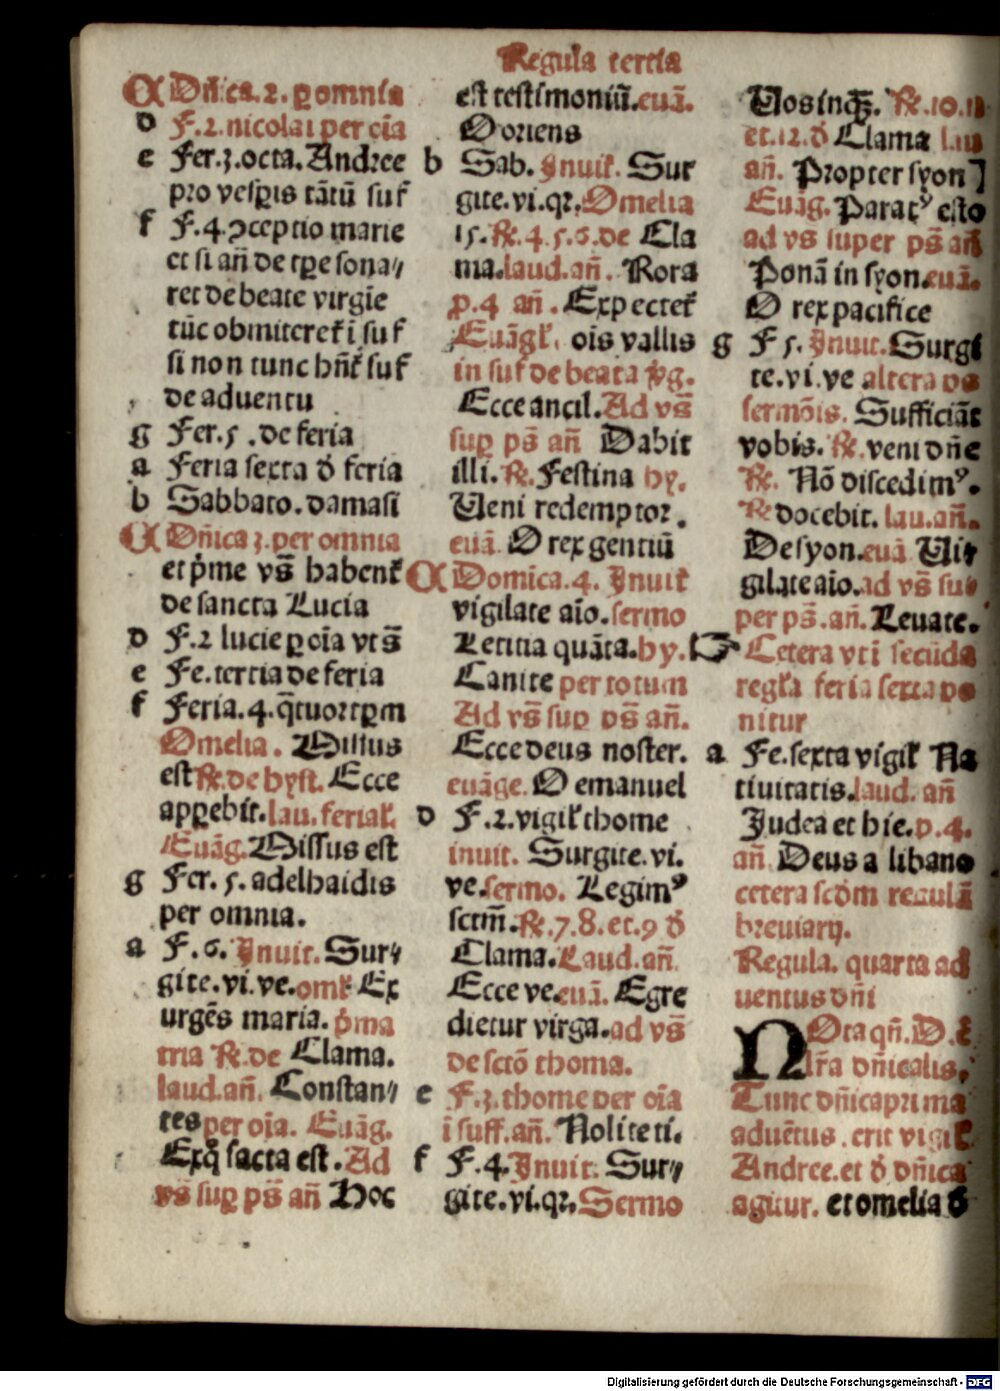 Regula tertia
A Dñica.2.ꝑ omnia
d F.2.nicolai per oīa
e Fer.3.octa.Andree
pro vesꝑis tātū suf
f F.4.ꝯceptio marie
et si añ de tꝑe sona⸗
ret de beate virgīe
tūc obmitteret̄ i suf
si non tunc hñt̄ suf
de aduentu
g Fer.5.de feria
a Feria sexta ꝺ feria
b Sabbato.damasi
A Dñica 3.per omnia
et p̄me vs̄ habent̄
de sancta Lucia
d F.2 lucie ꝑ oīa vts̄
e Fe.tertia de feria
f Feria.4.q̄tuortꝑm
Omelia. Missus
est ℟.de hyst. Ecce
apꝑebit.lau.ferial̄.
Euāg.Missus est
g Fer.5.adelhaidis
per omnia.
a F.6.Inuit.Sur⸗
gite.vi.ve.oml̄ Ex
urgēs maria.p̄ma
tria ℟.de Clama.
laud.añ. Constan⸗
tes per oīa. Euāg.
Exq̄ facta est.Ad
vs̄ suꝑ ps̄ añ Hoc
est testimoniū.euā.
O oriens
b Sab.Inuit̄. Sur
gite.vi.qr.Omelia
15.℟.4.5.6.de Cla
ma.laud.añ. Rora
p.4 añ. Expectet̄
Euāgl̄. oīs vallis
in suf de beata v̄g.
Ecce ancil.Ad vs̄
suꝑ ps̄ añ Dabit
illi.℟.Festina hy.
Ueni redemptor.
euā. O rex gentiū
A Domica.4. Inuit̄
vigilate aīo.sermo
Letitia quāta.hy.
Canite per totum
Ad vs̄ suꝑ ps̄ añ.
Ecce deus noster.
euāge.O emanuel
d F.2.vigil̄ thome
inuit. Surgite.vi.
ve.sermo. Legimꝰ
sctm̄.℟.7.8.et.9 ꝺ
Clama.Laud.añ.
Ecce ve.euā. Egre
dietur virga.ad vs̄
de sctō thoma.
e F.3.thome per oīa
i suff.añ. Nolite ti.
f F.4.Inuit. Sur⸗
gite.vi.qr.Sermo
Uos inqꝫ. ℟.10.11
et.12.ꝺ Clama lau
añ. Propter syon
Euāg.Paratꝰ esto
ad vs̄ super ps̄ añ
Ponā in syon.euā.
O rex pacifice
g F 5.Inuit.Surgi
te.vi.ve altera ps
sermōis. Sufficiāt
vobis.℟.veni dñe
℟. Nō discedimꝰ.
℟ docebit.lau.añ.
De syon.euā. Uir
gilate aīo.ad vs̄ su⸗
per ps̄.añ. Leuate.
☞ Cetera vti secūda
regl̄a feria sexta po
nitur
a Fe.sexta vigil̄ Na
tiuitatis.laud.añ
Judea et hie.p.4.
añ.Deus a libano
cetera scdm regulā
breuiarij.
Regula.quarta ad
uentus dñi
NOta qñ.D.ē
lr̄a dñicalis.
Tunc dñica prima
aduētus.erit vigil̄
Andree.et ꝺ dñica
agitur. et omelia ꝺ
Digitalisierung gefördert durch die Deutsche Forschungsgemeinschaft - DFG